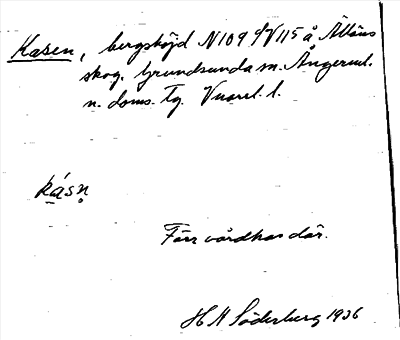 Kasen, bergshöjd N109 å
skog. Grundsunda sn. Ångerml.
n. doms. Tg. l.
kásn
Förr vårdkas där.
H H Söderberg 1936